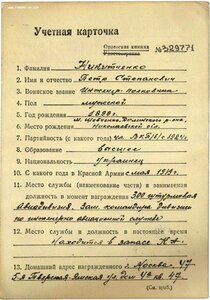 Учетная карточка
Орденская книжка
№329771
1. Фамилия
2. Имя и отчество Петр Степанович
3. Воинское звание Инженер-полковник
4. Пол мужской
5. Год рождения 1899 г.
6. Место рождения
Николаевской обл.
7. Партийность (с какого года) чл. ВКП(б) с 1924 г.
8. Образование высшее
9. Национальность украинец
10. С какого года в Красной Армии с мая 1919 г.
11. Место службы (наименование части) и занимаемая
должность в момент награждения 300 штурмовая
Авиадивизия. Зам. командира дивизии
по инженерно авиационной службе
12. Место службы и должность в настоящее время
Находится в запасе К.А.
13. Домашний адрес награжденного г. Москва
(См. н/об.)